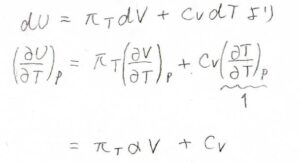 dU = π_T dV + C_V dT より
(∂U/∂T)_P = π_T (∂V/∂T)_P + C_V (∂T/∂T)_P
1
= π_T α V + C_V